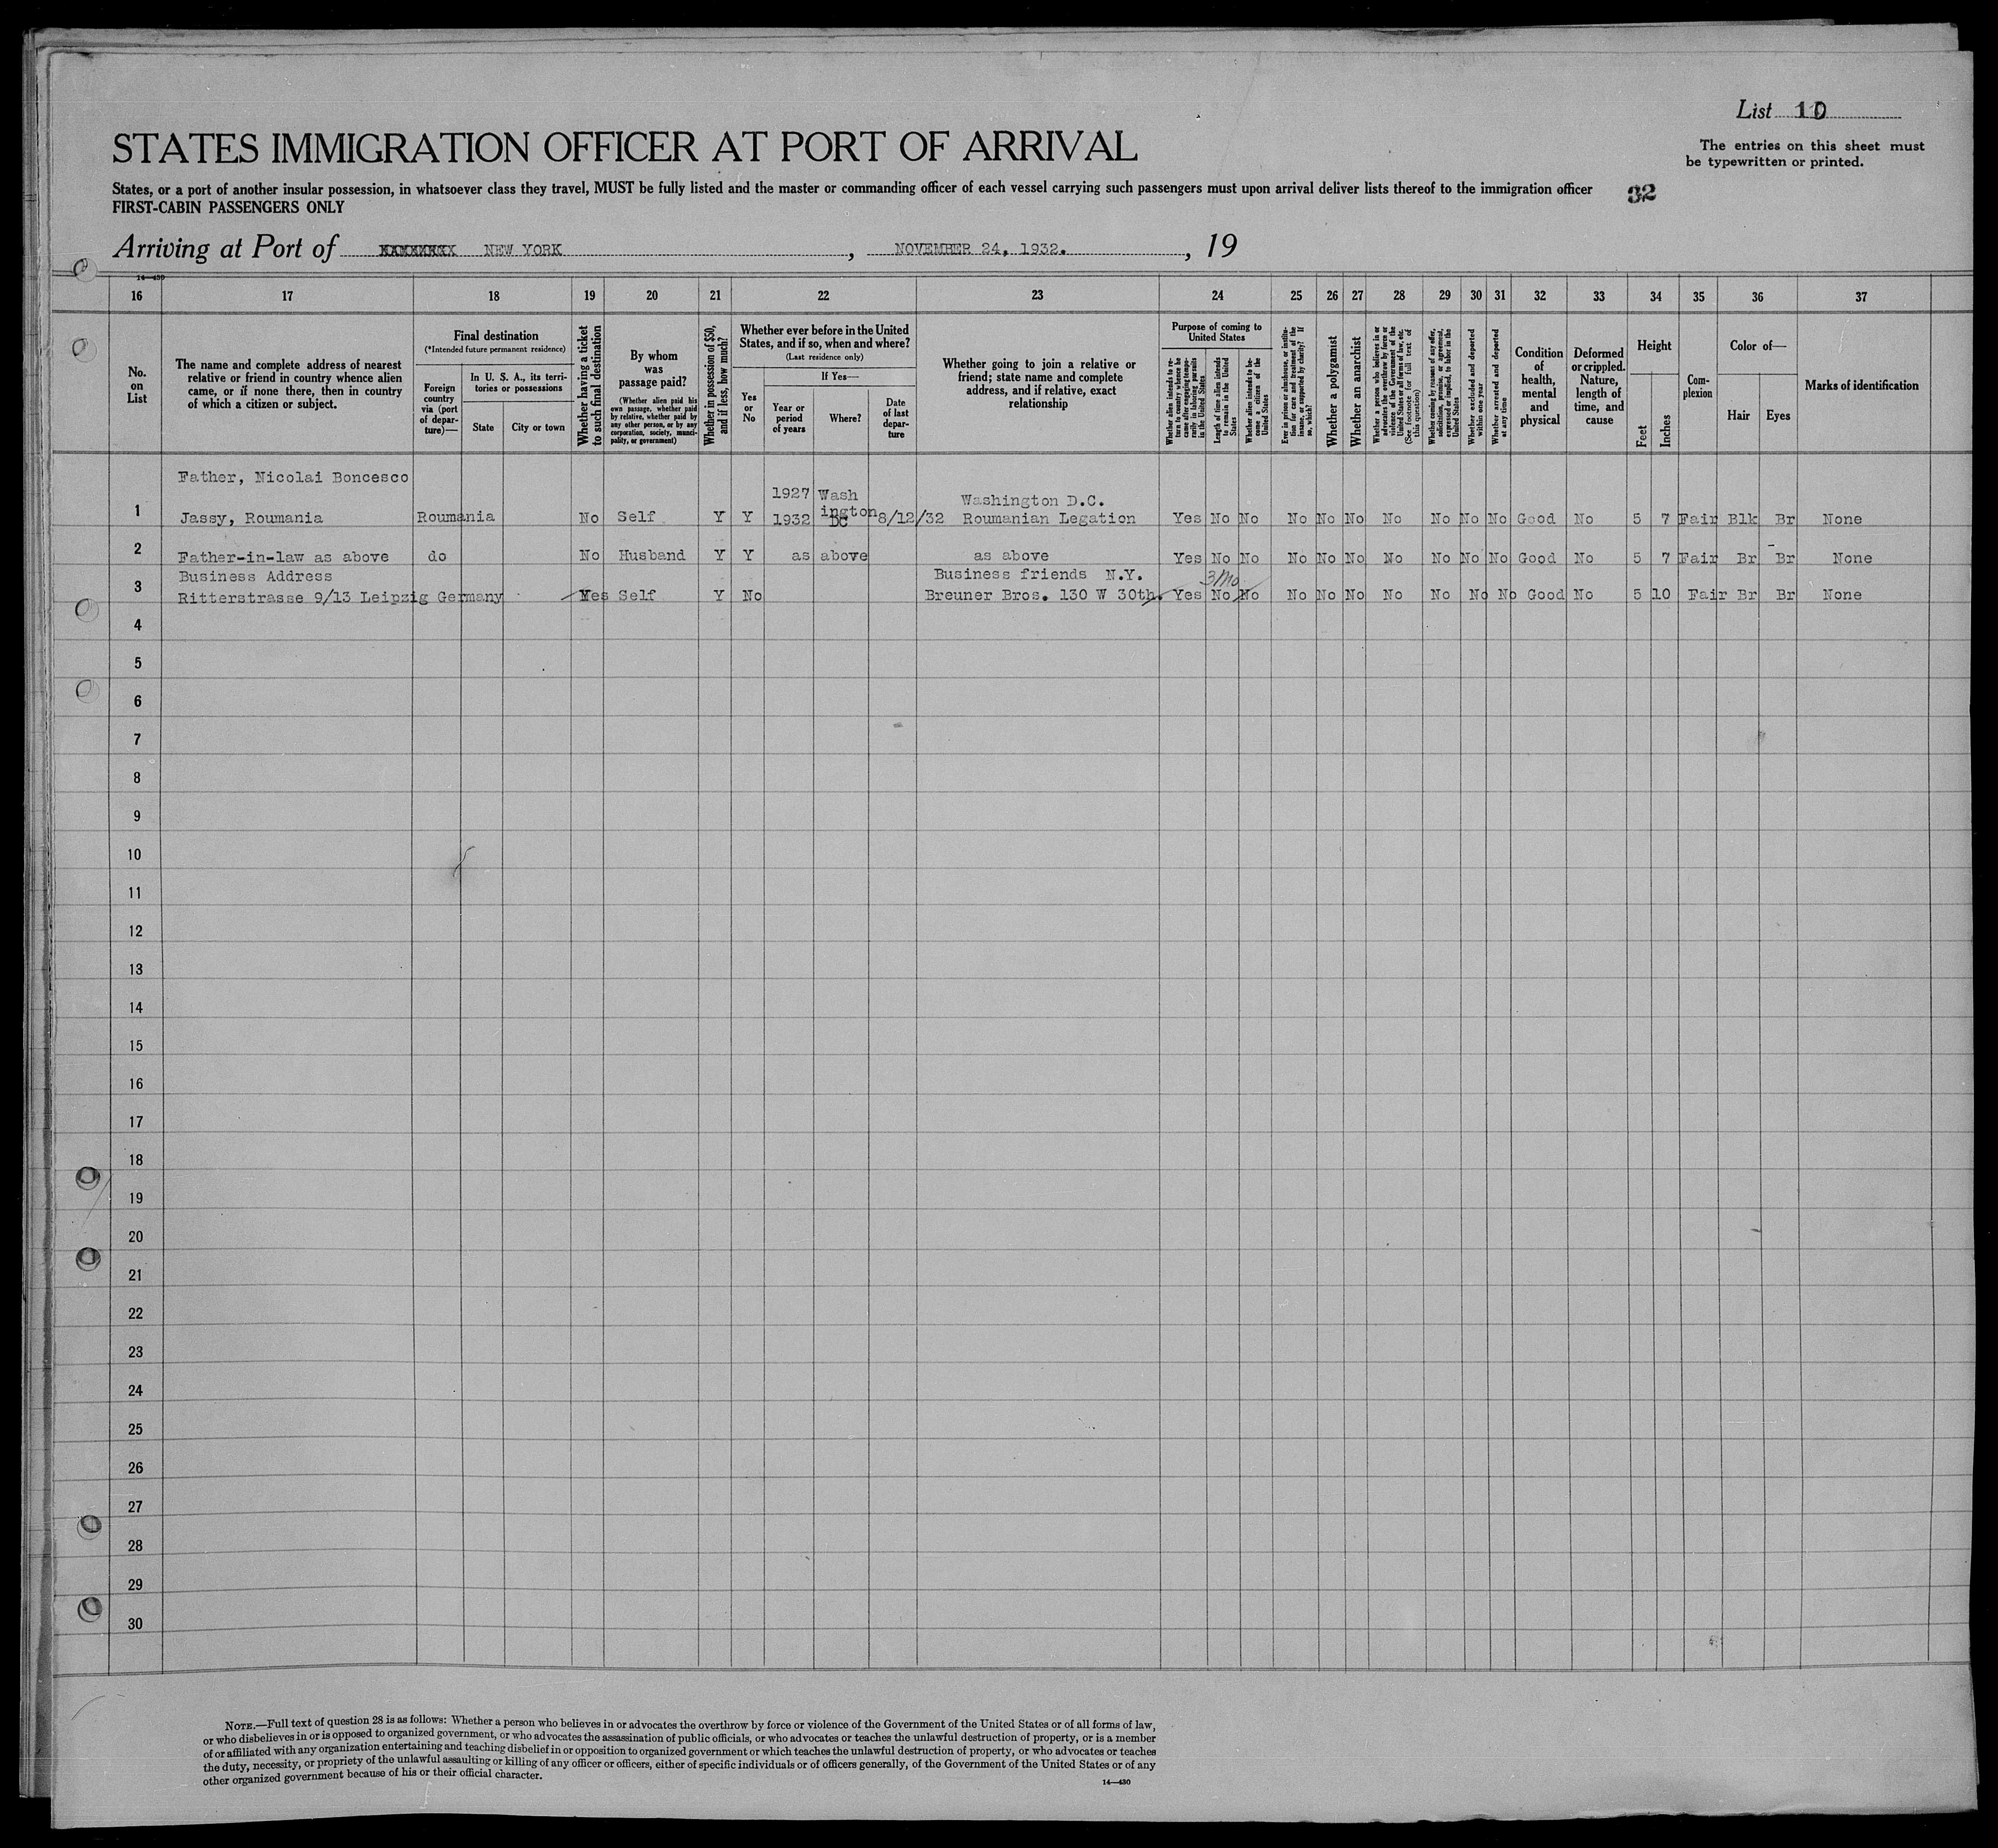 List 10
The entries on this sheet must
be typewritten or printed.
STATES IMMIGRATION OFFICER AT PORT OF ARRIVAL
States, or a port of another insular possession, in whatsoever class they travel, MUST be fully listed and the master or commanding officer of each vessel carrying such passengers must upon arrival deliver lists thereof to the immigration officer
FIRST-CABIN PASSENGERS ONLY
32
Arriving at Port of NEW YORK, NOVEMBER 24, 1932., 19
14—430
16 17 18 19 20 21 22 23 24 25 26 27 28 29 30 31 32 33 34 35 36 37
No. on List
The name and complete address of nearest
relative or friend in country whence alien
came, or if none there, then in country
of which a citizen or subject.
Final destination
(*Intended future permanent residence)
Foreign country via (port of departure)—
In U. S. A., its territories or possessions
State
City or town
Whether having a ticket to such final destination
By whom was passage paid?
(Whether alien paid his own passage, whether paid by relative, whether paid by any other person, or by any corporation, society, municipality, or government)
Whether in possession of $50, and if less, how much?
Whether ever before in the United
States, and if so, when and where?
(Last residence only)
Yes or No
If Yes—
Year or period of years
Where?
Date of last departure
Whether going to join a relative or
friend; state name and complete
address, and if relative, exact
relationship
Purpose of coming to United States
Whether alien intends to return to country whence he came after engaging temporarily in laboring pursuits in the United States
Length of time alien intends to remain in the United States
Whether alien intends to become a citizen of the United States
Ever in prison or almshouse, or institution for care and treatment of the insane, or supported by charity? If so, which?
Whether a polygamist
Whether an anarchist
Whether a person who believes in or advocates the overthrow by force or violence of the Government of the United States or all forms of law, etc. (See footnote for full text of this question)
Whether coming by reasons of any offer, solicitation, promise, or agreement, expressed or implied, to labor in the United States
Whether excluded and deported within one year
Whether arrested and deported at any time
Condition of health, mental and physical
Deformed or crippled. Nature, length of time, and cause
Height
Feet
Inches
Complexion
Color of—
Hair
Eyes
Marks of identification
Father, Nicolai Boncesco
1927 Wash Washington D.C.
1 Jassy, Roumania Roumania No Self Y Y 1932 ington DC 8/12/32 Roumanian Legation Yes No No No No No No No No No Good No 5 7 Fair Blk Br None
2 Father-in-law as above do No Husband Y Y as above as above Yes No No No No No No No No No Good No 5 7 Fair Br Br None
Business Address Business friends N.Y. 3 Mo
3 Ritterstrasse 9/13 Leipzig Germany Yes Self Y No Breuner Bros. 130 W 30th. Yes No No No No No No No No No Good No 5 10 Fair Br Br None
4
5
6
7
8
9
10
11
12
13
14
15
16
17
18
19
20
21
22
23
24
25
26
27
28
29
30
NOTE.—Full text of question 28 is as follows: Whether a person who believes in or advocates the overthrow by force or violence of the Government of the United States or of all forms of law,
or who disbelieves in or is opposed to organized government, or who advocates the assassination of public officials, or who advocates or teaches the unlawful destruction of property, or is a member
of or affiliated with any organization entertaining and teaching disbelief in or opposition to organized government or which teaches the unlawful destruction of property, or who advocates or teaches
the duty, necessity, or propriety of the unlawful assaulting or killing of any officer or officers, either of specific individuals or of officers generally, of the Government of the United States or of any
other organized government because of his or their official character.
14—430